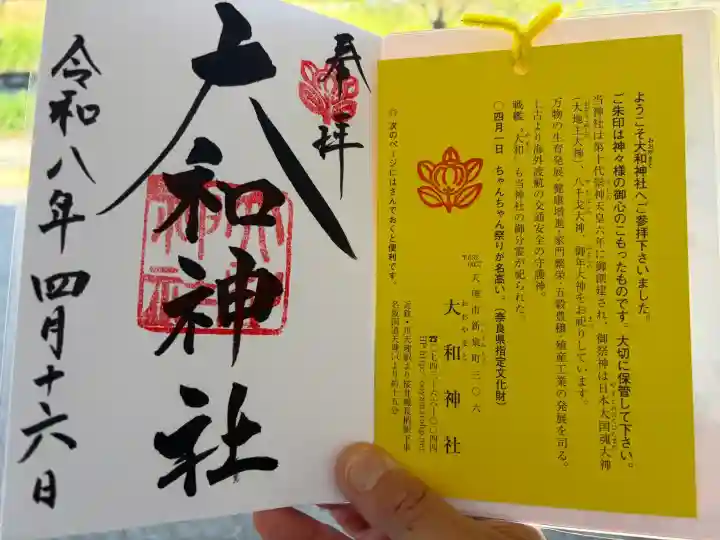 奉拝
大和神社
令和八年四月十六日
ようこそ大和神社へご参拝下さいました。
ご朱印は神々様の御心のこもったものです。大切に保管して下さい。
当神社は第十代崇神天皇六年に御創建され、御祭神は日本大国魂大神
(大地主大神)、八千戈大神、御年大神をお祀りしています。
万物の生育発展・健康増進・家門繁栄・五穀豊穣・殖産工業の発展を司る。
上古より海外渡航の交通安全の守護神。
戦艦“大和”も当神社の御分霊が祀られた。
○四月一日 ちゃんちゃん祭りが名高い。(奈良県指定文化財)
天理市新泉町三〇六
大和神社
おおやまと
名阪国道天理ICより約十五分
◎ 次のページにはさんでおくと便利です。